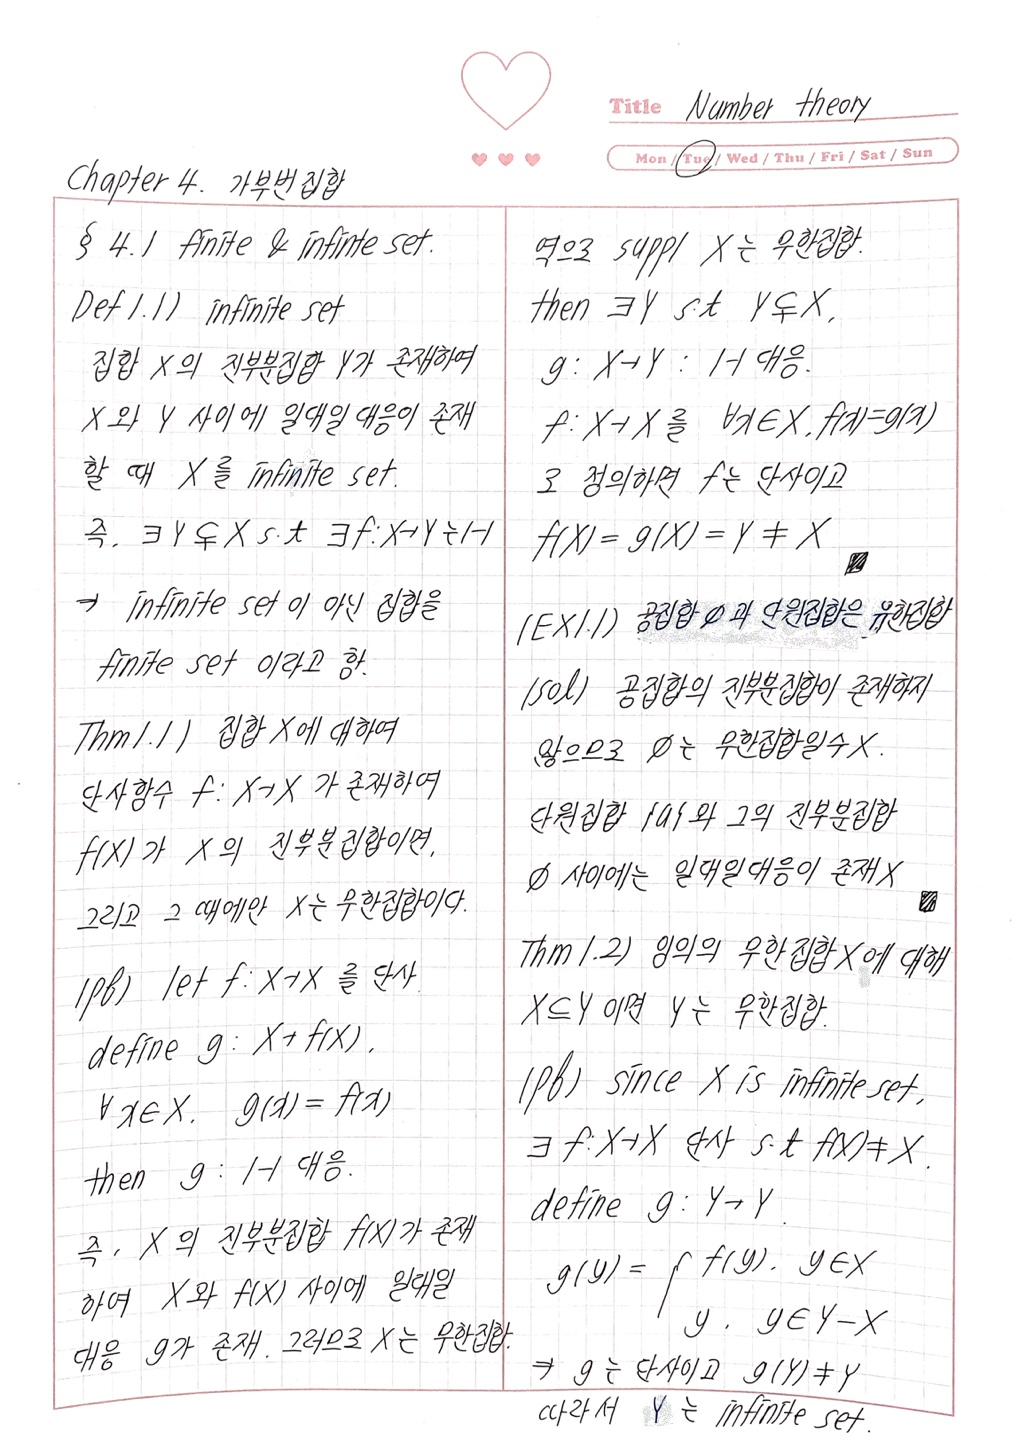 Title Number theory
Mon / Tue / Wed / Thu / Fri / Sat / Sun
Chapter 4. 가부번집합
§ 4.1 finite & infinte set.
Def 1.1) infinite set
집합 X의 진부분집합 Y가 존재하여
X와 Y 사이에 일대일 대응이 존재
할 때 X를 infinite set.
즉, ∃Y⊊X s.t ∃f:X→Y는 1-1
→ infinite set이 아닌 집합을
finite set 이라고 함.
Thm 1.1) 집합 X에 대하여
단사함수 f: X→X 가 존재하여
f(X)가 X의 진부분집합이면,
그리고 그 때에만 X는 무한집합이다.
(pf) let f: X→X 를 단사
define g: X→f(X),
∀x∈X, g(x) = f(x)
then g: 1-1 대응.
즉, X의 진부분집합 f(X)가 존재
하여 X와 f(X) 사이에 일대일
대응 g가 존재. 그러므로 X는 무한집합.
역으로 supp) X는 무한집합.
then ∃Y s.t Y⊊X,
g: X→Y : 1-1 대응.
f: X→X를 ∀x∈X, f(x)=g(x)
로 정의하면 f는 단사이고
f(X) = g(X) = Y ≠ X
(EX1.1) 공집합 ∅과 단원집합은 유한집합
(sol) 공집합의 진부분집합이 존재하지
않으므로 ∅는 무한집합일수X.
단원집합 {a}와 그의 진부분집합
∅ 사이에는 일대일대응이 존재X
Thm 1.2) 임의의 무한집합 X에 대해
X⊆Y 이면 Y는 무한집합.
(pf) since X is infinite set,
∃ f: X→X 단사 s.t f(X)≠X.
define g: Y→Y.
g(y) = { f(y). y∈X
y. y∈Y-X
→ g는 단사이고 g(Y)≠Y
따라서 Y는 infinite set.